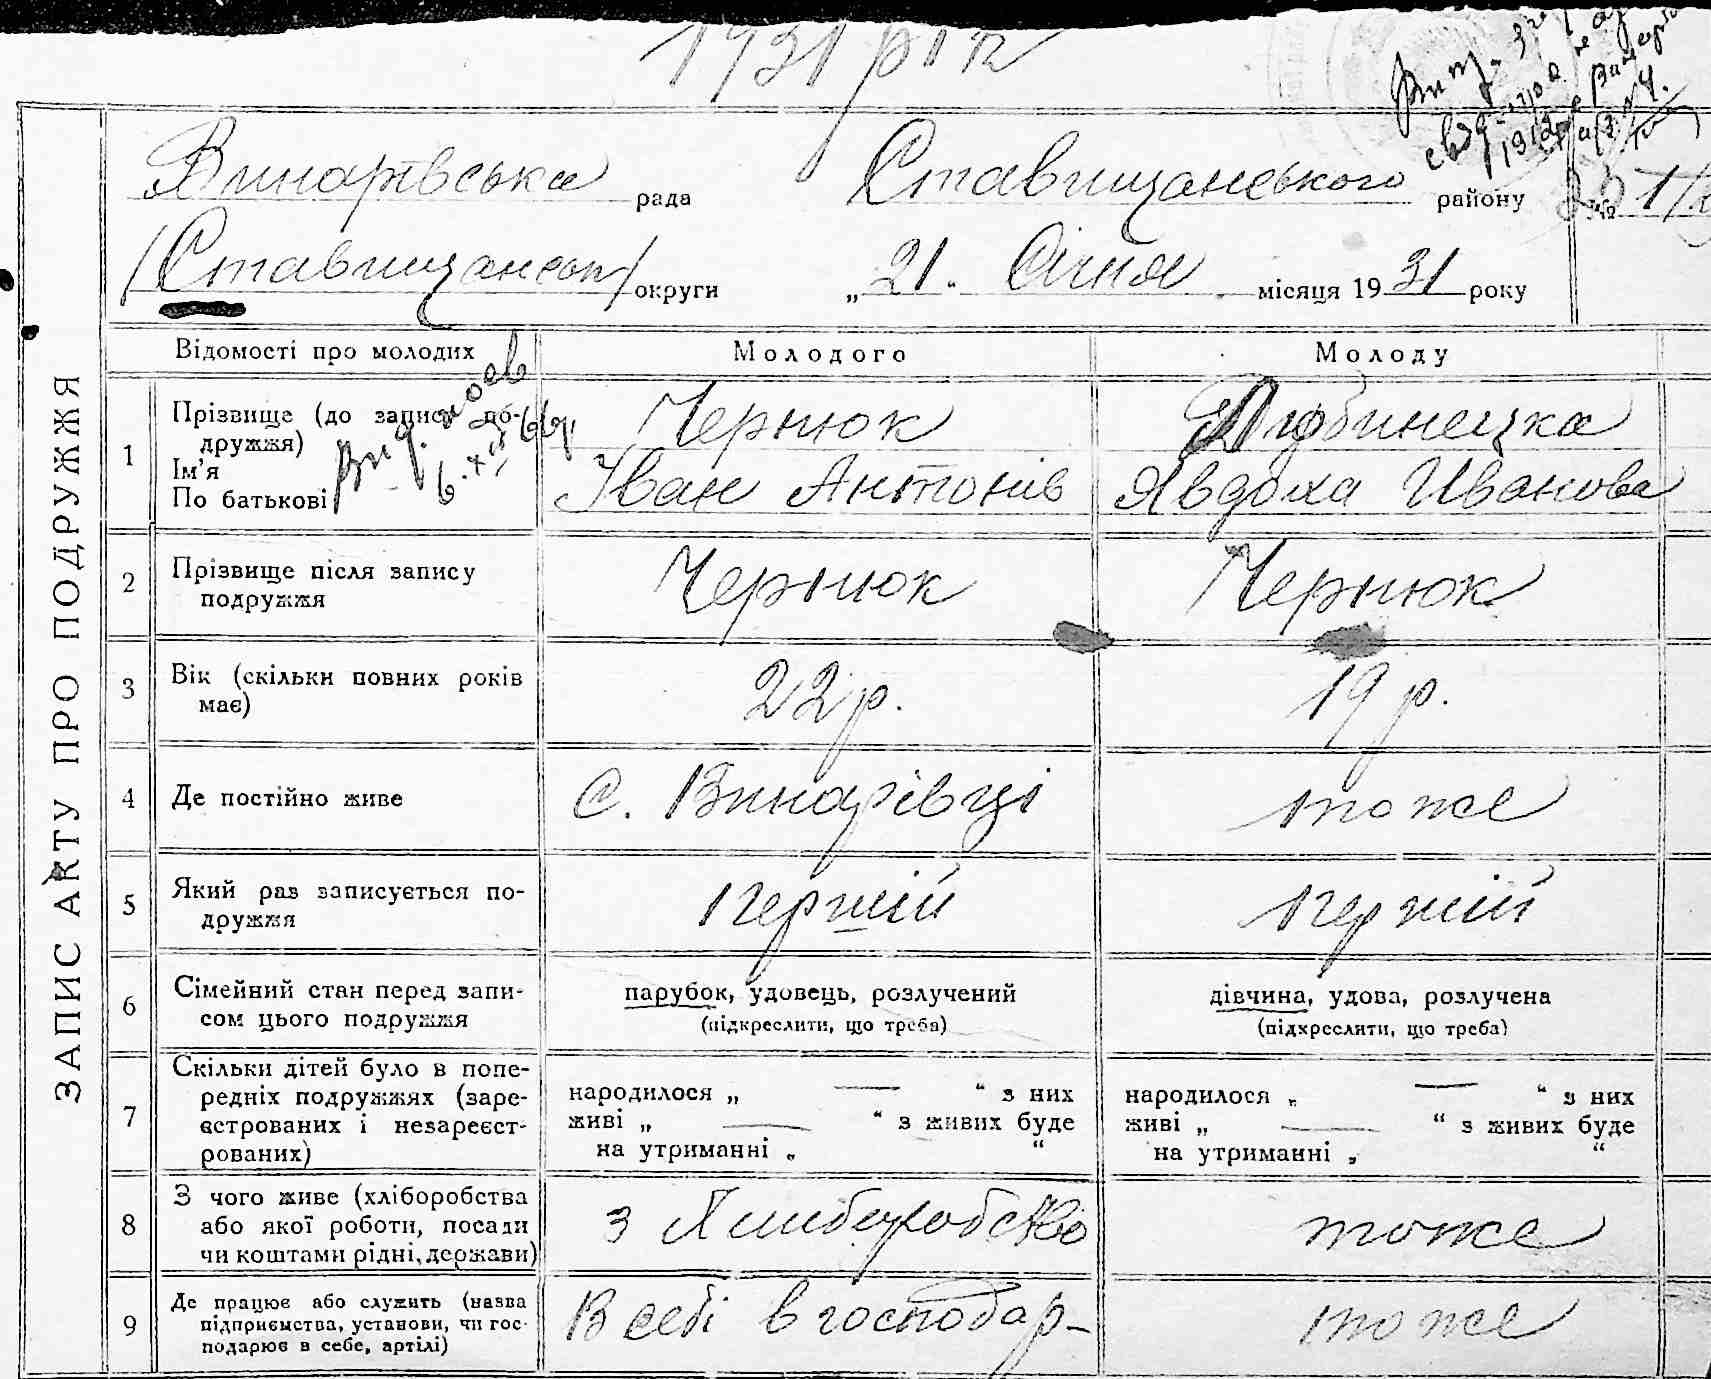 1931 рік
Винарівська рада Ставищанського району №
/Ставищанськ/ округи „21. Січня місяця 1931 року
ЗАПИС АКТУ ПРО ПОДРУЖЖЯ
Відомості про молодих Молодого Молоду
1 Прізвище (до запису по-
дружжя) Чернюк Дибинецка
Ім'я
По батькові Іван Антонів Явдоха Иванова
2 Прізвище після запису
подружжя Чернюк Чернюк
3 Вік (скільки повних років
має) 22 р. 19 р.
4 Де постійно живе С. Винарівці тоже
5 Який раз записується по-
дружжя перший перший
6 Сімейний стан перед запи-
сом цього подружжя
парубок, удовець, розлучений дівчина, удова, розлучена
(підкреслити, що треба) (підкреслити, що треба)
7 Скільки дітей було в попе-
редніх подружжях (заре-
єстрованих і незареєст-
рованих)
народилося „ — “ з них народилося „ — “ з них
живі „ — “ з живих буде живі „ — “ з живих буде
на утриманні „ “ на утриманні „ “
8 З чого живе (хліборобства
або якої роботи, посади
чи коштами рідні, держави)
з Хлиборобство тоже
9 Де працює або служить (назва
підприємства, установи, чи гос-
подарює в себе, артілі)
В себі в господар- тоже